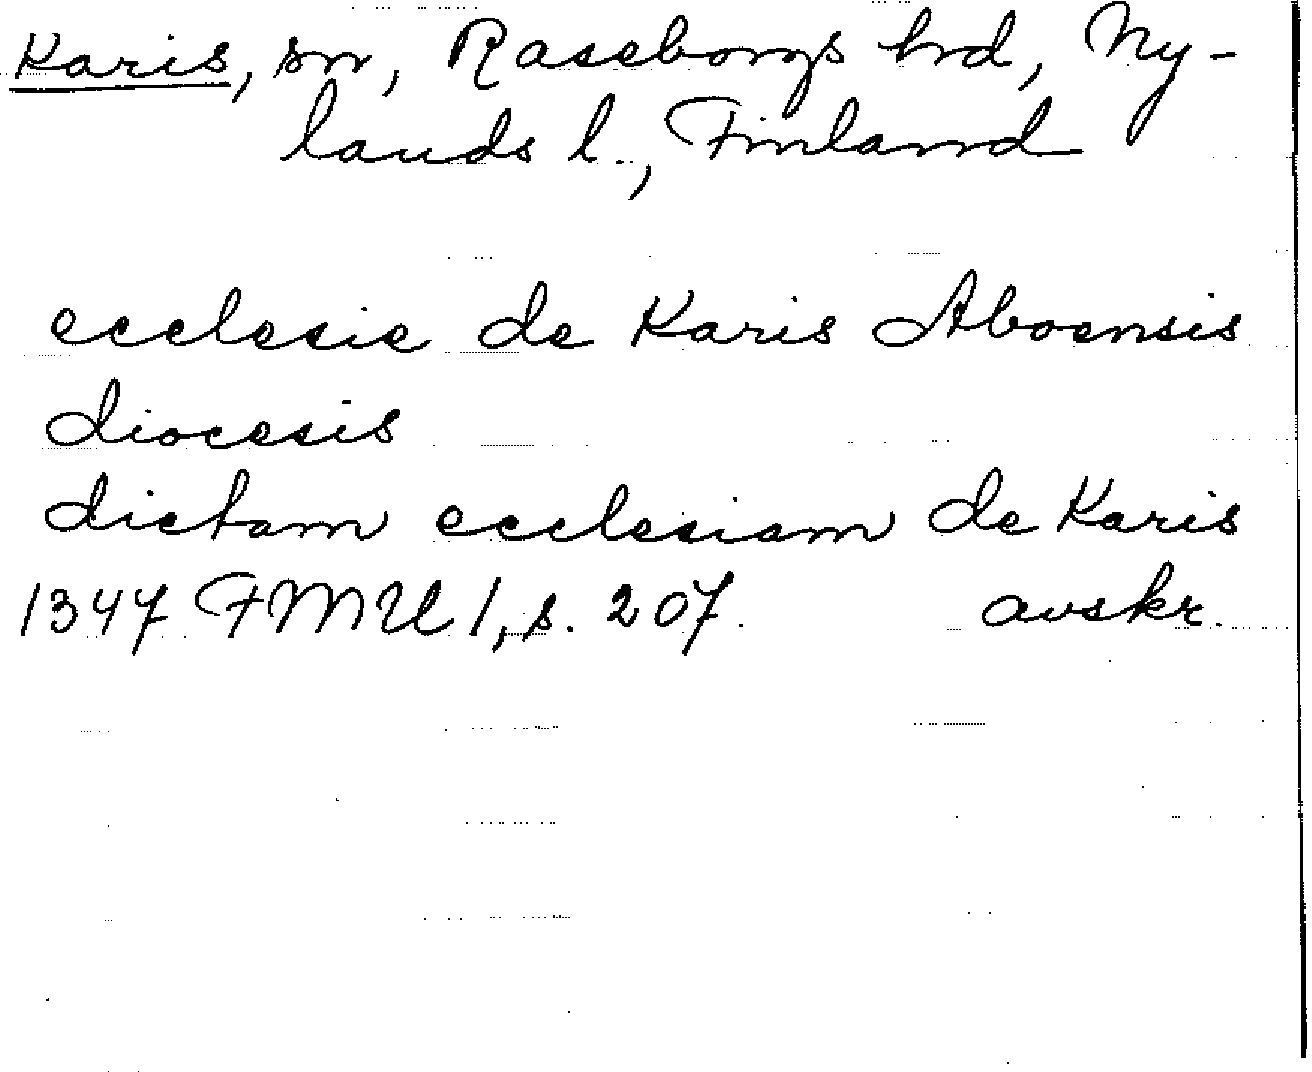 Karis, sn, Raseborgs hrd, Ny-
lands l., Finland
ecclesie de Karis Aboensis
diocesis
dictam ecclesiam de Karis
1347 FMU 1, s. 207. avskr.